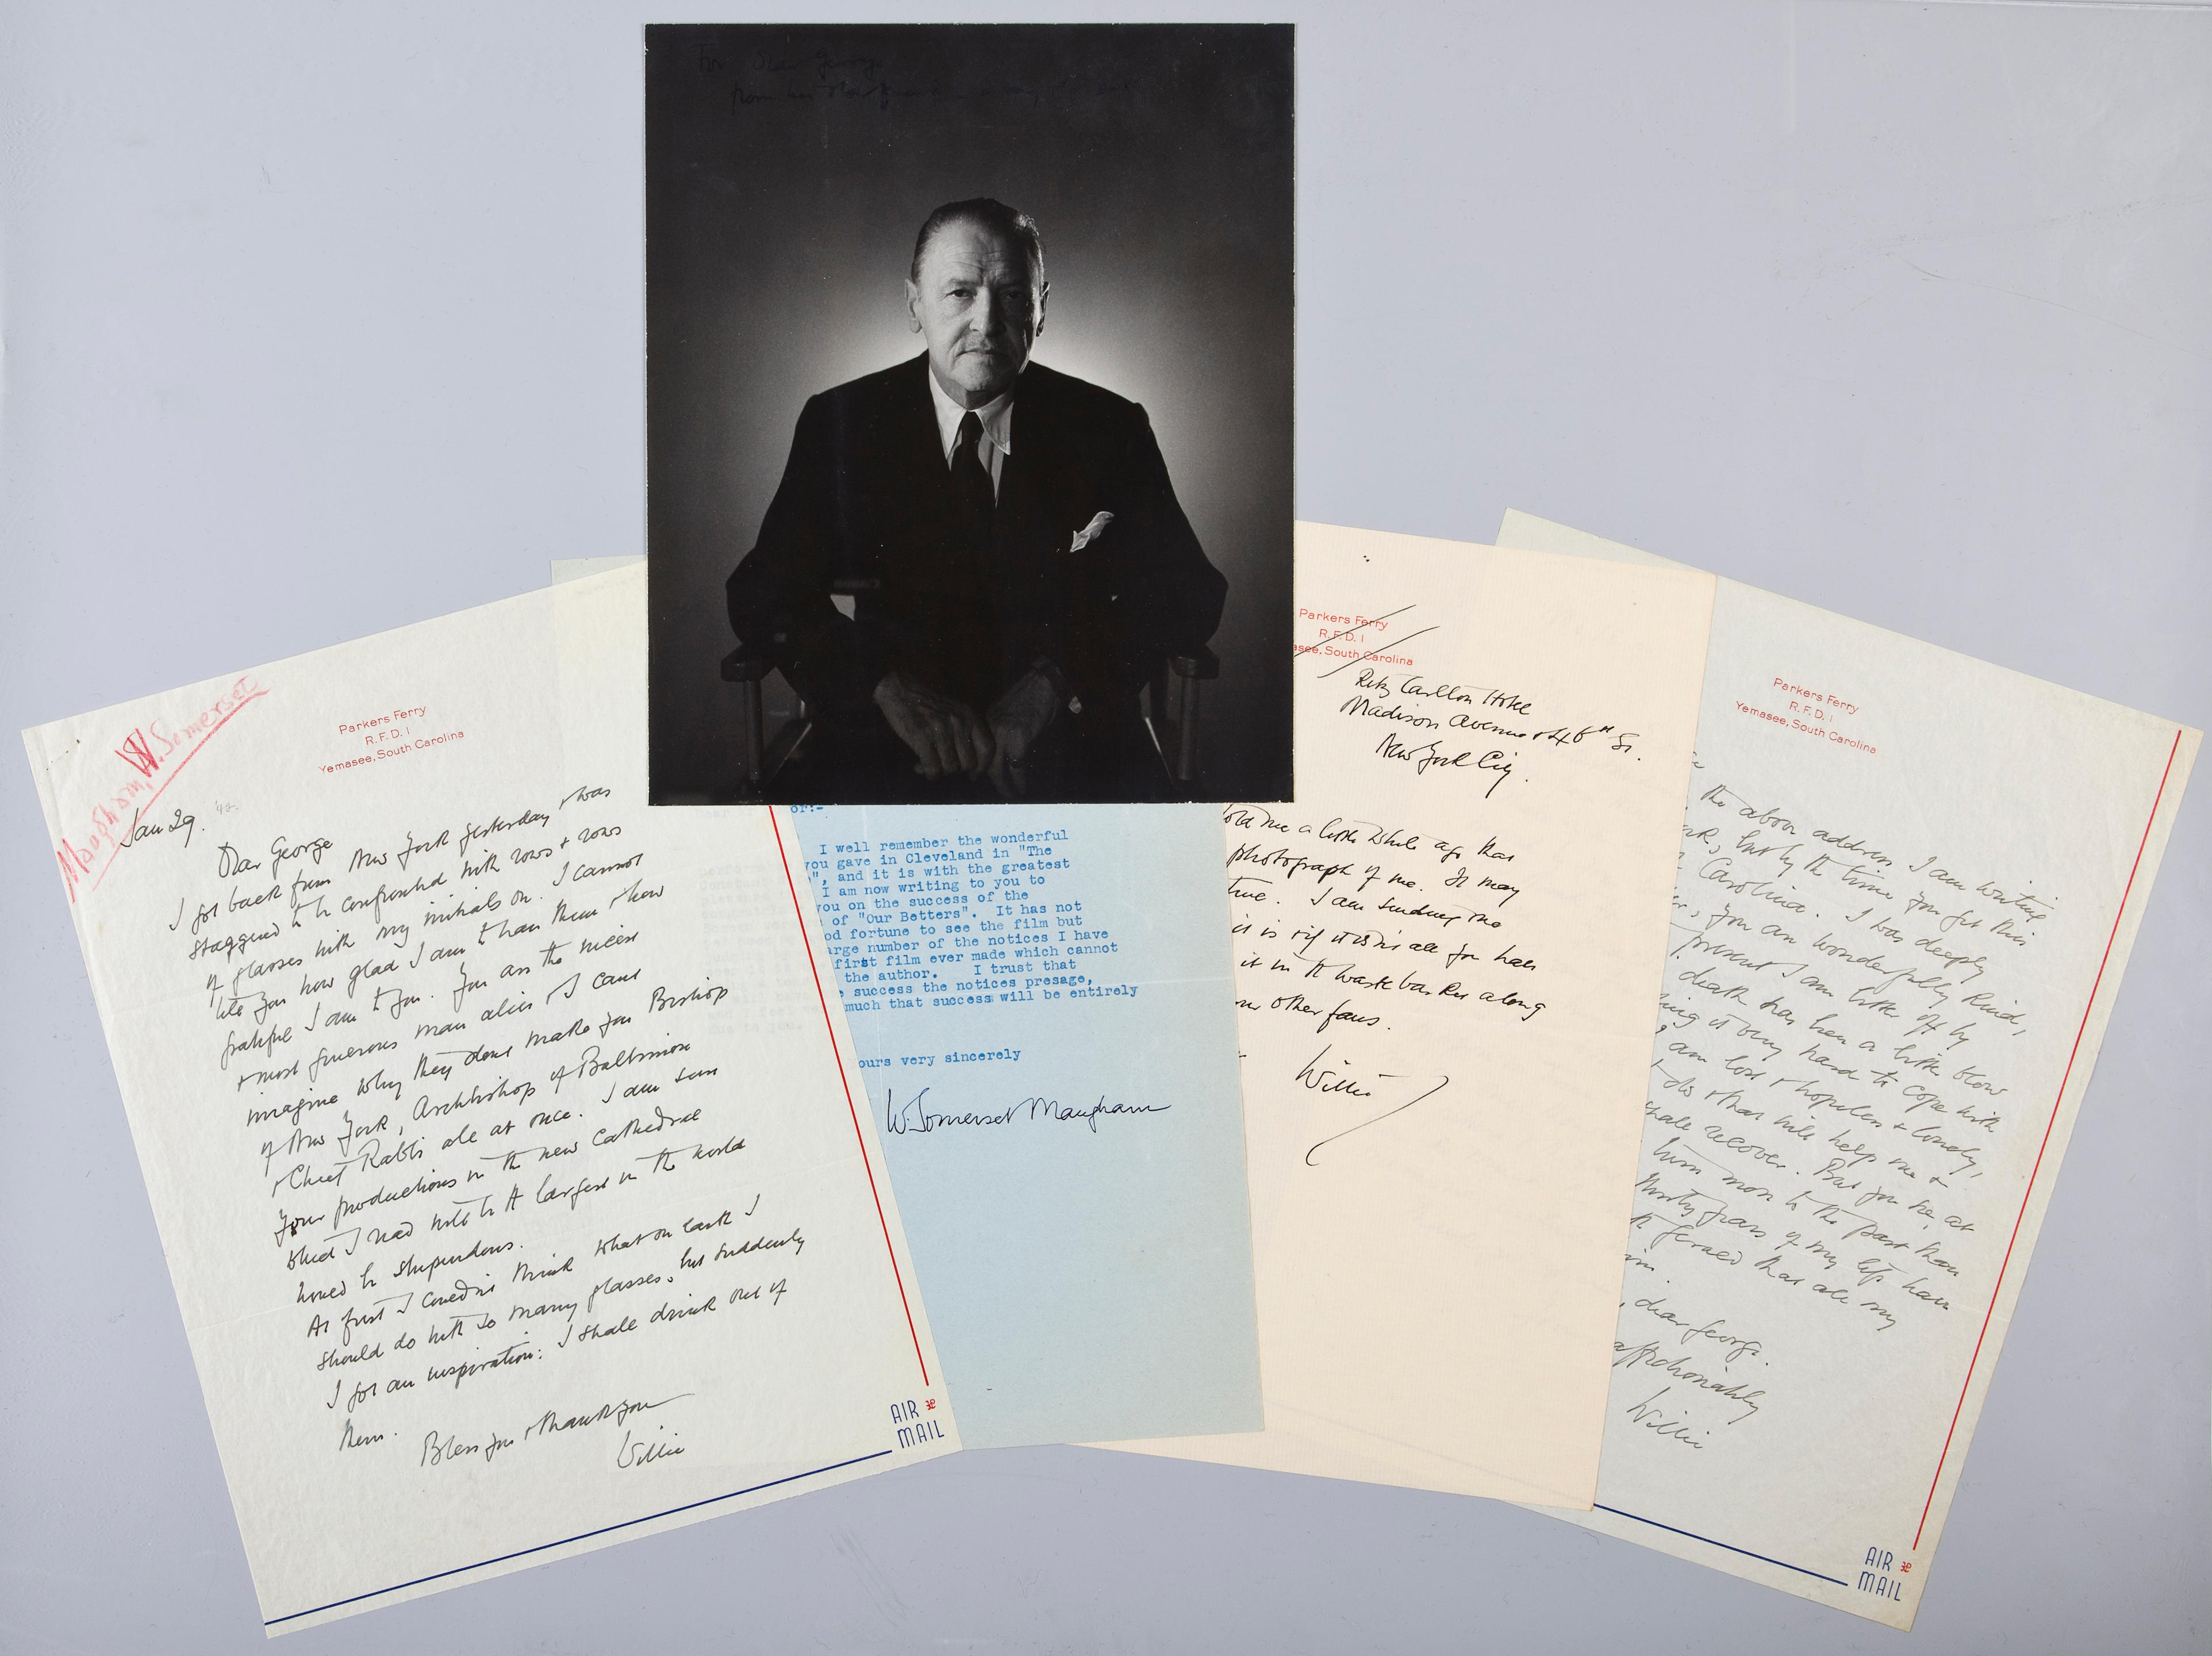 For Dear George
from his old
Maugham, W. Somerset
Parkers Ferry
R.F.D. 1
Yemasee, South Carolina
Jan 29.
Dear George
I got back from New York yesterday & was
staggered to be confronted with rows & rows
of glasses with my initials on. I cannot
tell you how glad I am to have them & how
grateful I am to you. You are the nicest
& most generous man alive & I cant
imagine why they dont make you Bishop
of New York, Archbishop of Baltimore
& Chief Rabbi all at once. I am sure
your productions in the new Cathedral
which I read will be the largest in the world
would be stupendous.
At first I couldnt think what on earth I
should do with so many glasses, but suddenly
I got an inspiration: I shall drink out of
them.
Bless you & thank you
Willie
AIR
MAIL
or:-
I well remember the wonderful
you gave in Cleveland in "The
", and it is with the greatest
I am now writing to you to
you on the success of the
of "Our Betters". It has not
od fortune to see the film but
arge number of the notices I have
first film ever made which cannot
the author. I trust that
e success the notices presage,
much that success will be entirely
ours very sincerely
W. Somerset Maugham
Parkers Ferry
R.F.D. 1
asee, South Carolina
Ritz Carlton Hotel
Madison Avenue & 46th St.
New York City.
told me a little while ago that
photograph of me. It may
true. I am sending one
it is & if it isnt all you have
it in the waste basket along
other fans.
Willie
Parkers Ferry
R.F.D. 1
Yemasee, South Carolina
the above address I am writing
but by the time you get this
Carolina. I was deeply
you are wonderfully kind,
present I am
death has been a bitter blow
ing it very hard to cope with
am lost & hopeless & lonely,
this & that will help me &
shall recover. But you see, at
turn more to the past than
thirty years of my life have
Gerald that all my
him.
, dear George.
affectionately
Willie
AIR
MAIL